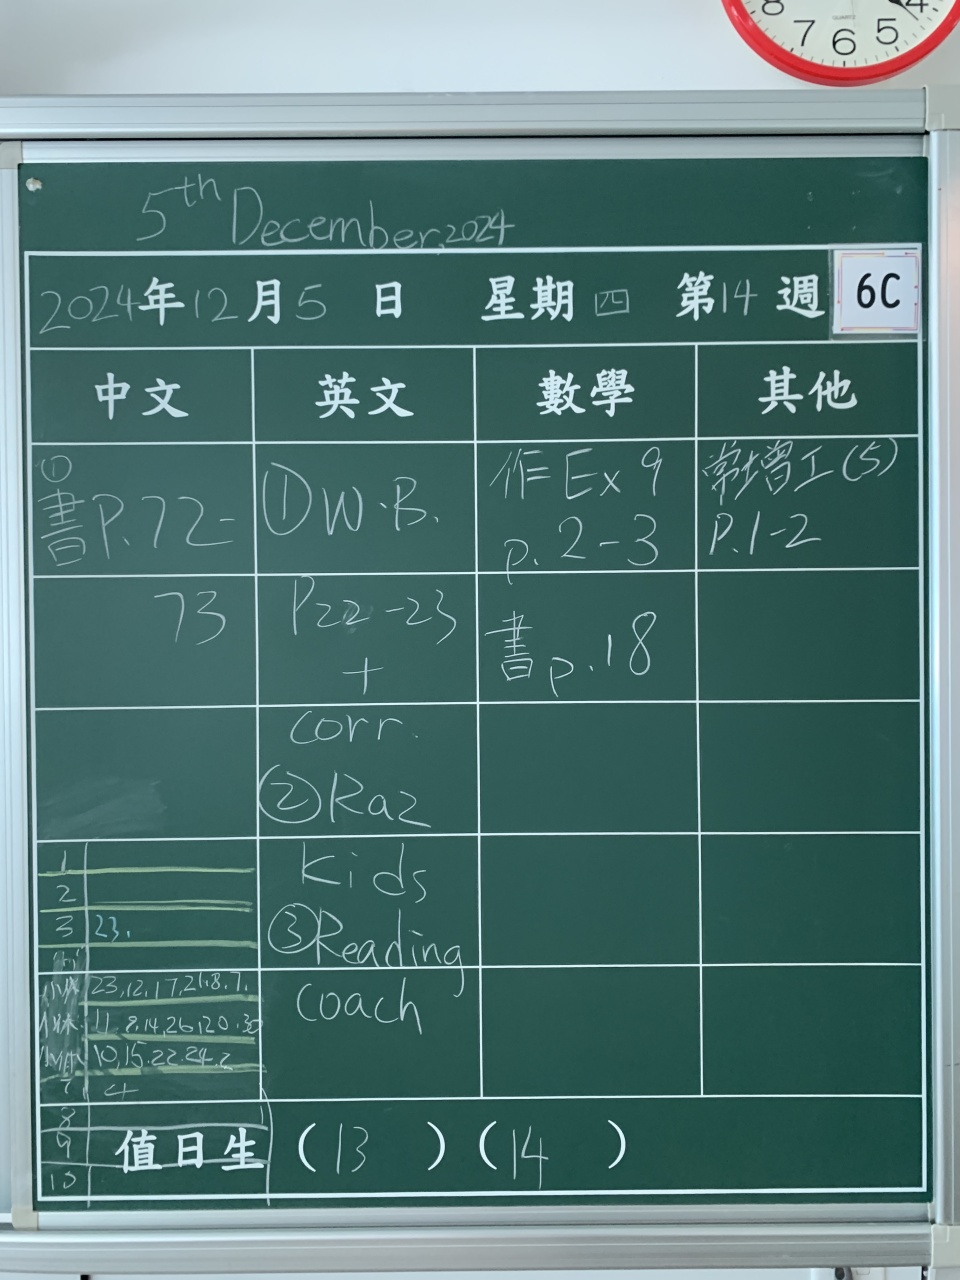 8 7 6 5 4
QUARTZ
5th December, 2024
2024年12月5日 星期四 第14週 6C
中文 英文 數學 其他
①
書P.72-
73
①W.B.
P22-23
+
corr.
②Raz
Kids
③Reading
coach
作Ex 9
p. 2-3
書p.18
常增工(5)
P.1-2
1
2
3 23.
小息 23,12,17,21.8.7.
小休 11.9.14,26,120.30
10,15.22.24.2
7 4
8
9
10
值日生 (13) (14)